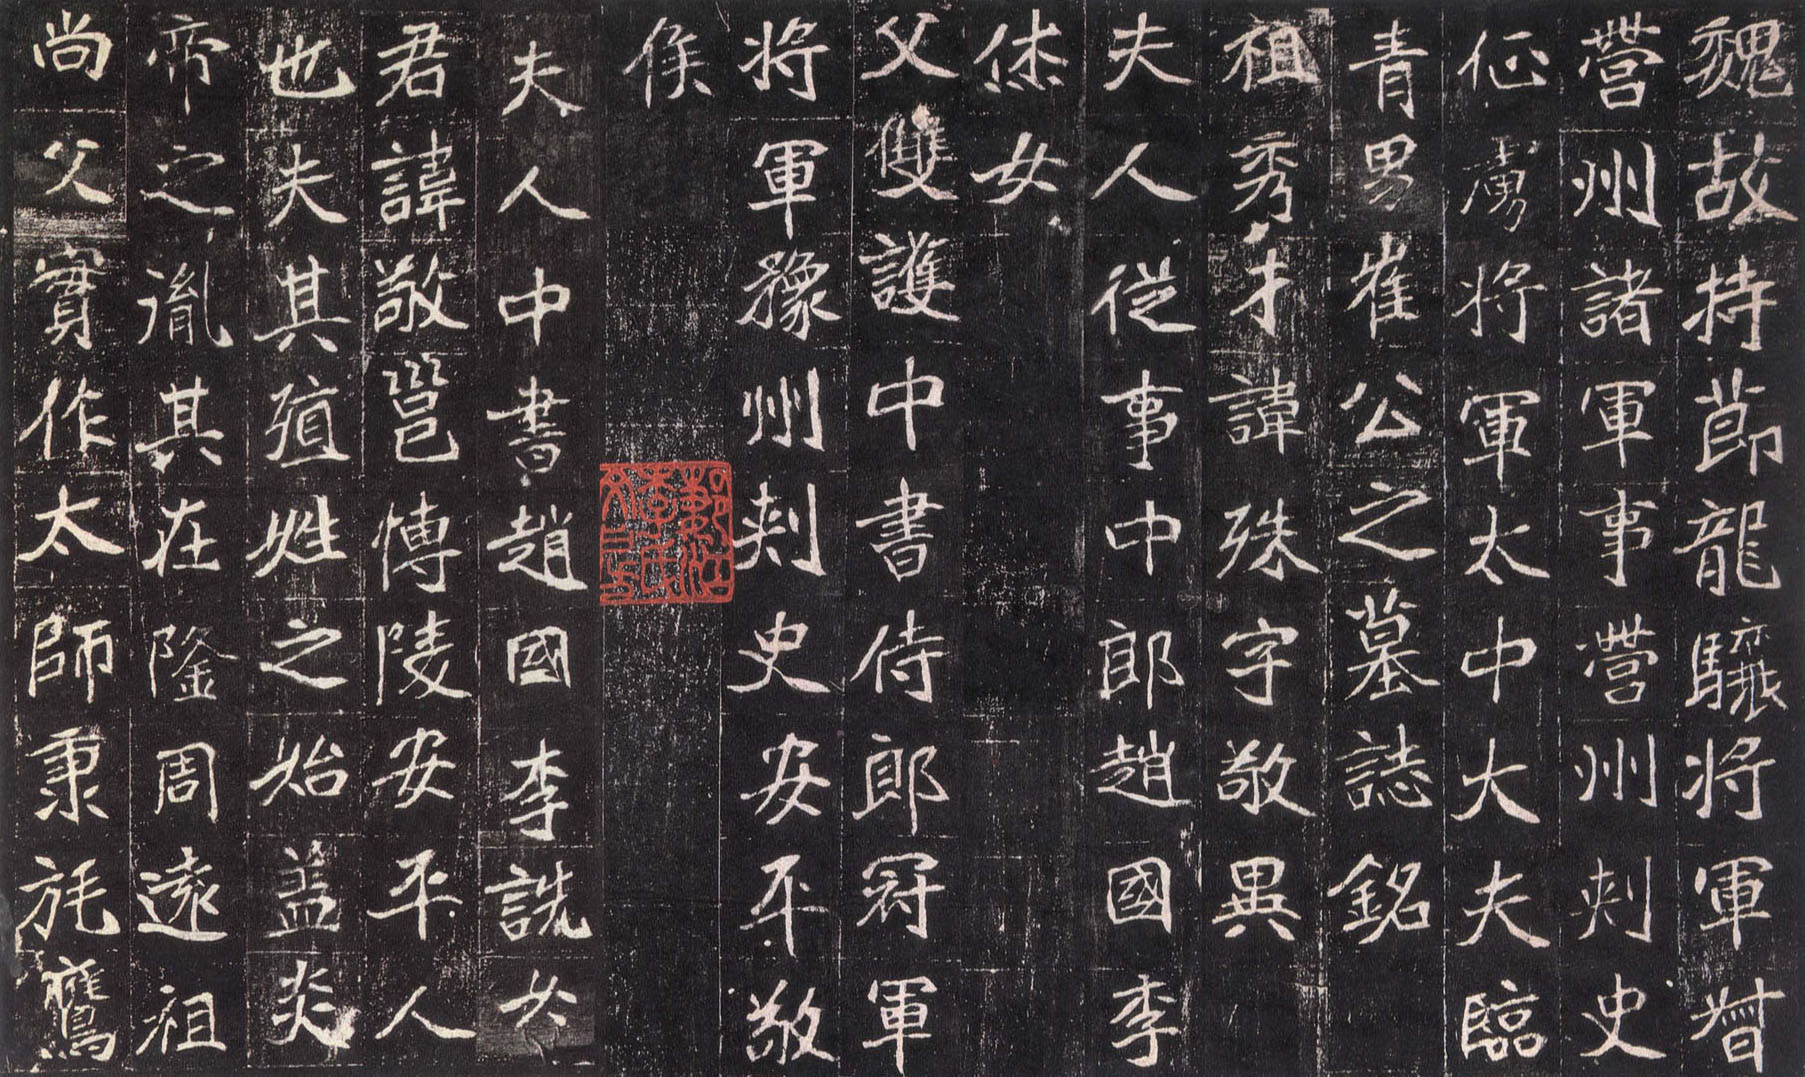 魏故持節龍驤將軍督
營州諸軍事營州刺史
征虜將軍太中大夫臨
青男崔公之墓誌銘
祖秀才諱殊字敬異
夫人從事中郎趙國李
烋女
父雙護中書侍郎冠軍
將軍豫州刺史安平敬
侯
夫人中書趙國李詵女
君諱敬邕博陵安平人
也夫其殖姓之始蓋炎
帝之胤其在隆周遠祖
尚父實作太師秉旄鷹